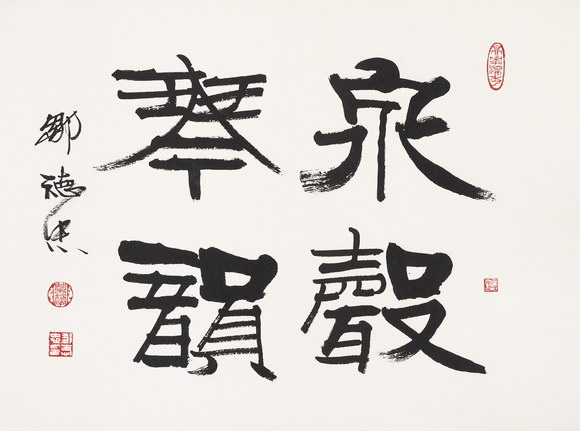 泉聲
琴韻
鄒德忠